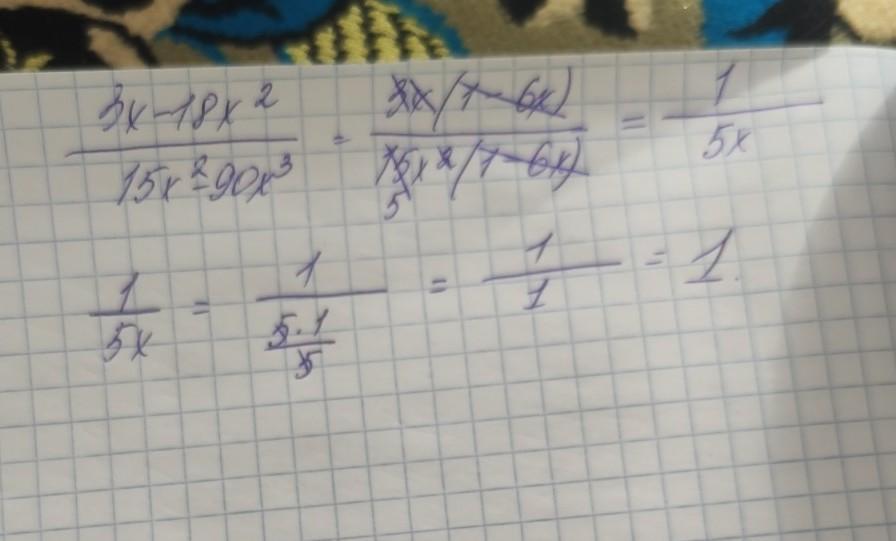 3x-18x² / 15x²-90x³ = 3x(1-6x) / 15x²(1-6x) = 1 / 5x
5
1 / 5x = 1 / (5·1 / 5) = 1 / 1 = 1.